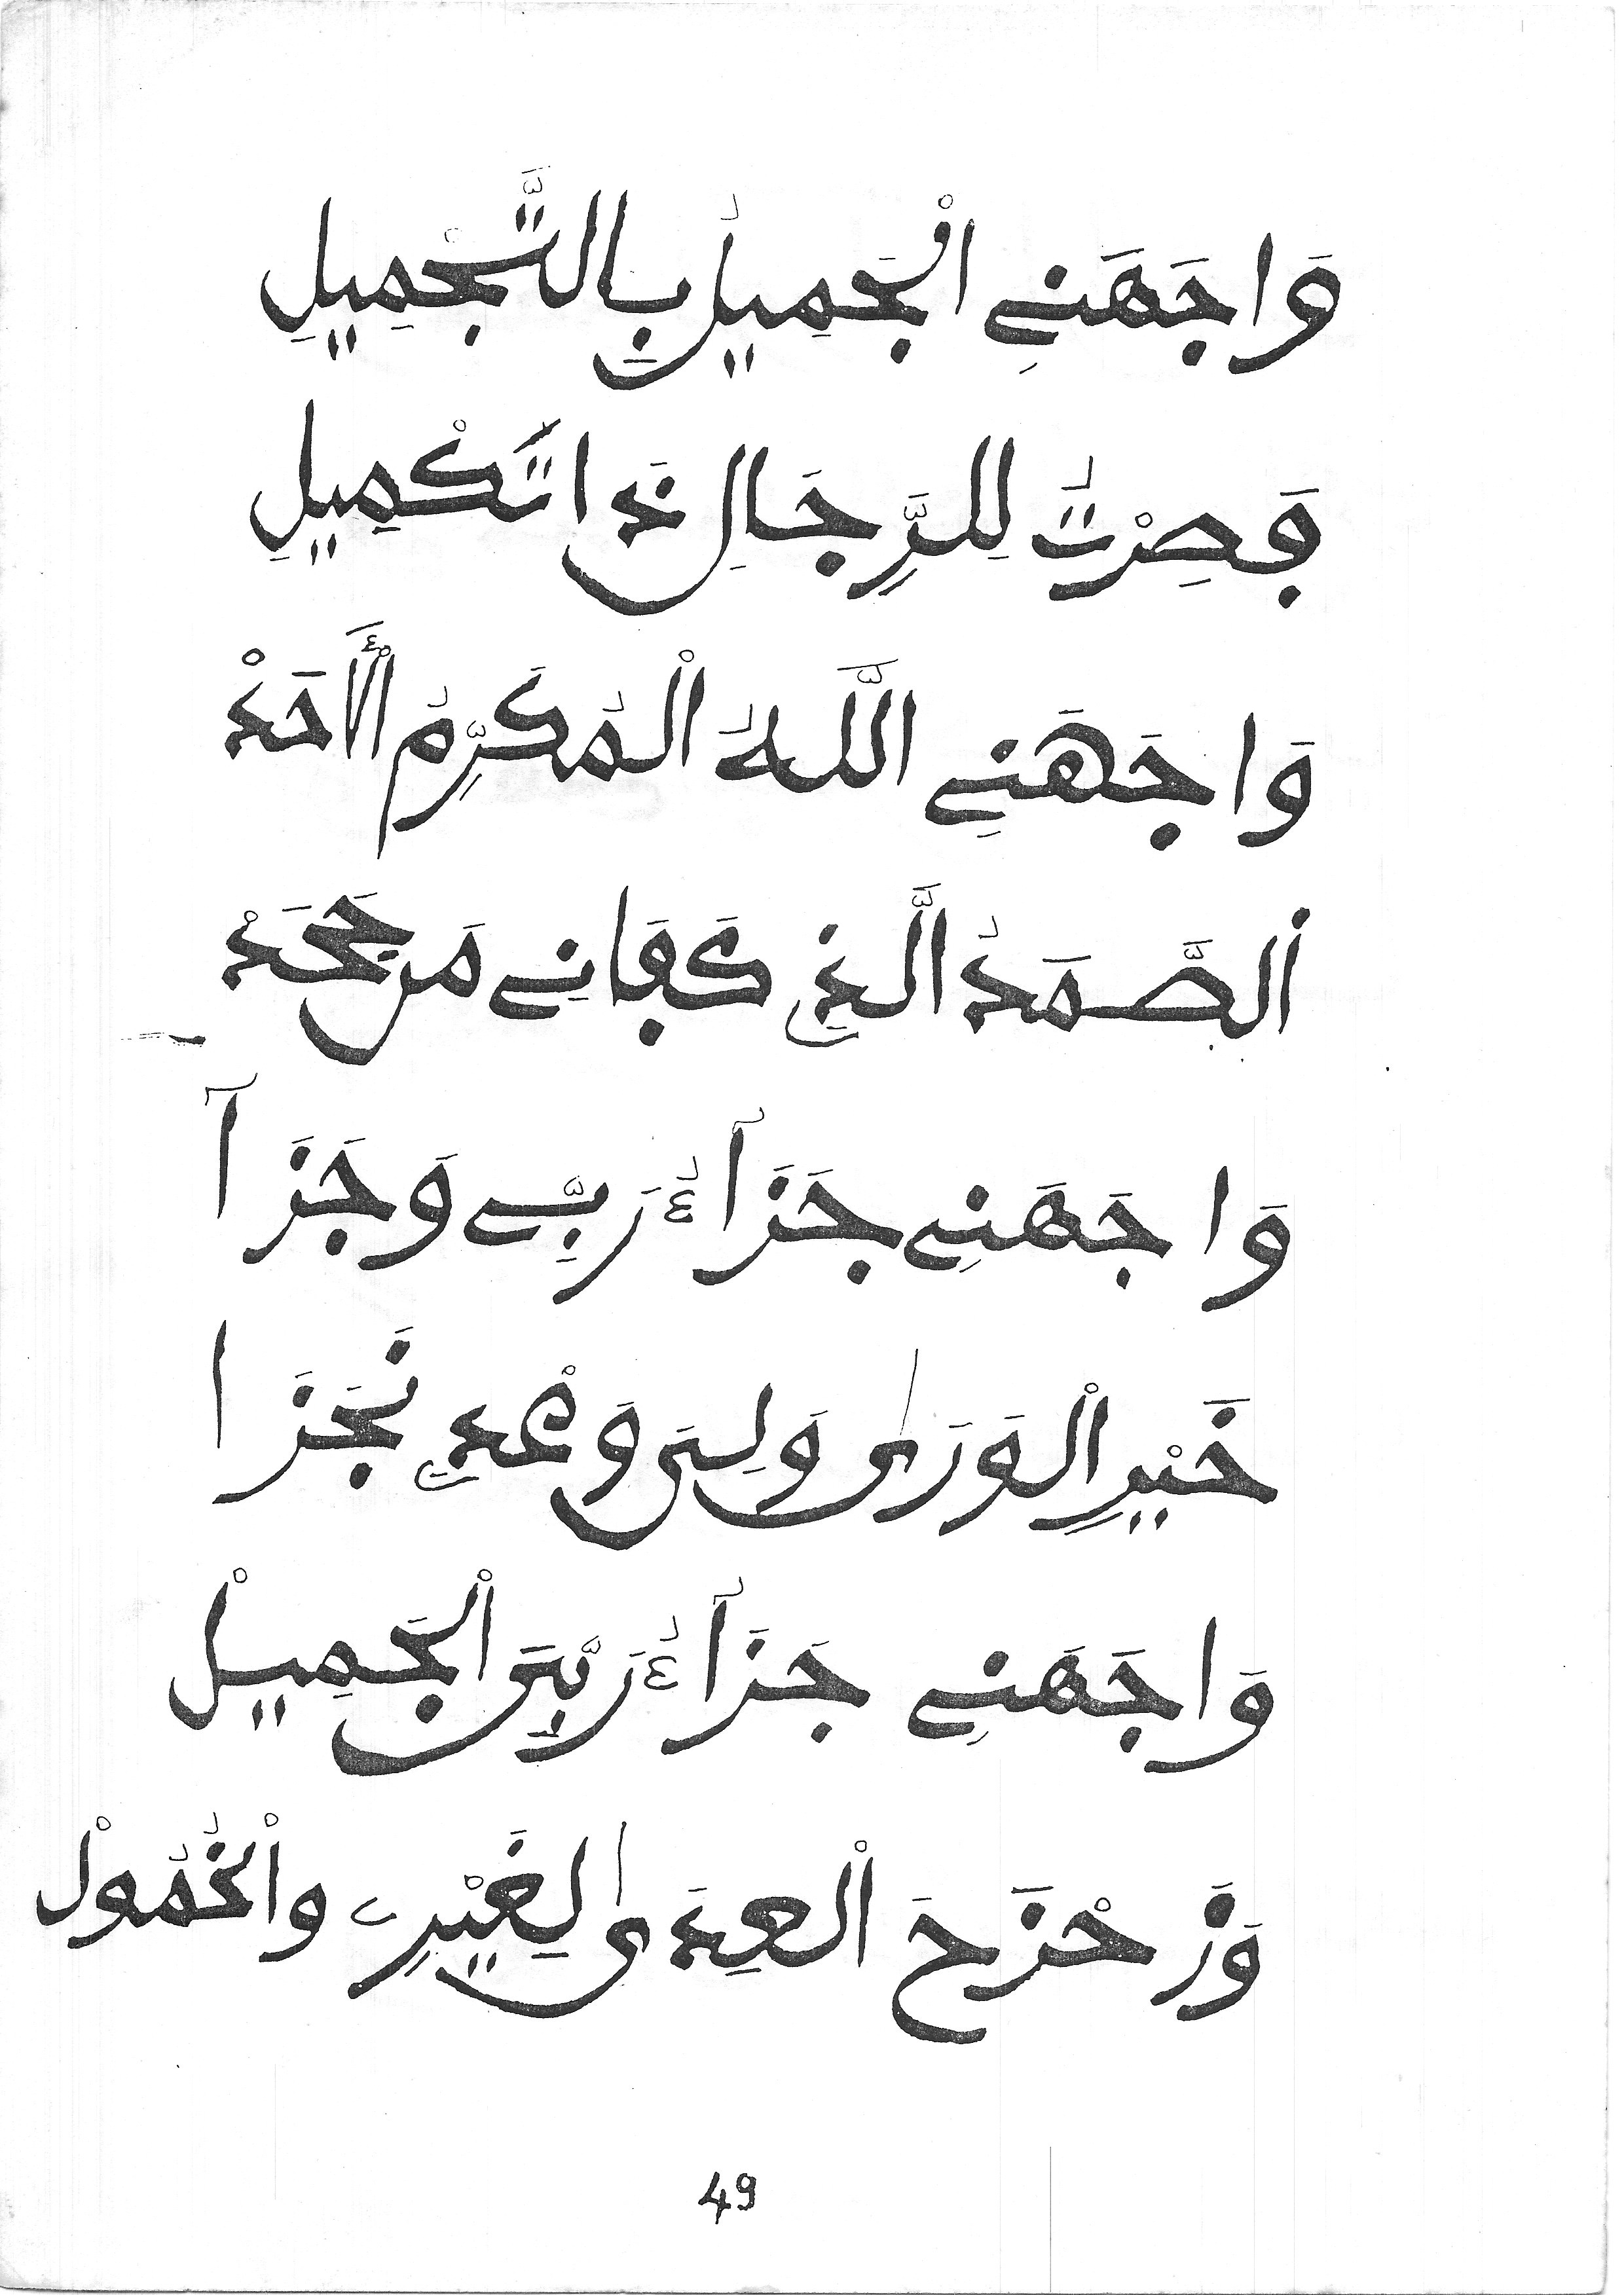 وَاجَهَنِي الْجَمِيلُ بِالتَّجْمِيلِ
فَصِرْتُ لِلرِّجَالِ ذَا تَكْمِيلِ
وَاجَهَنِي اللَّهُ الْمُكَرِّمُ الْأَحَدْ
اَلصَّمَدُ الَّذِي كَفَانِي مَن جَحَدْ
وَاجَهَنِي جَزَآءُ رَبِّي وَجَزَآ
خَيْرِ الْوَرَى وَلِيَ وَعْدِي نَجَزَا
وَاجَهَنِي جَزَآءُ رَبِّيَ الْجَمِيلْ
وَزَحْزَحَ الْعِدَى لِغَيْرِي والْخُمُولْ
49